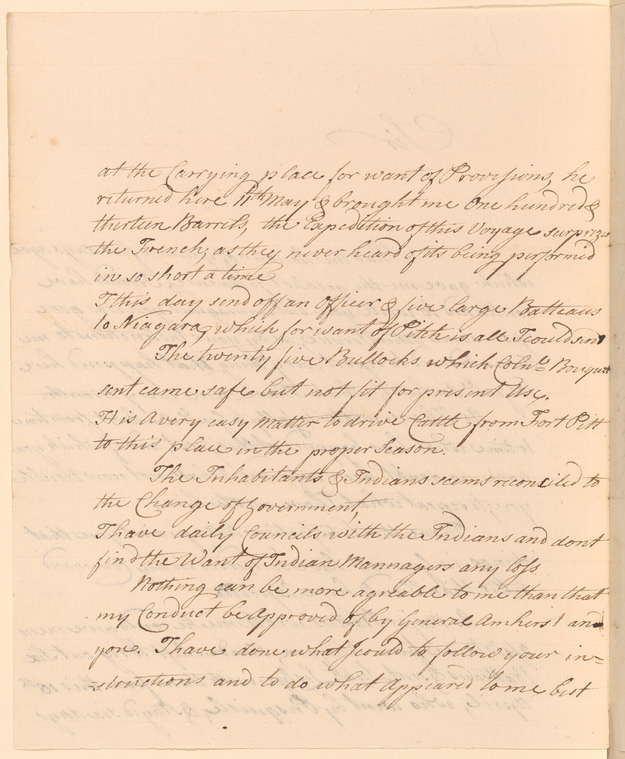 at the Carrying place for want of Provisions, he
returned here 11th May & brought me One hundred &
thirteen Barrels, the Expedition of this Voyage Surprizes
the French, as they never heard of its being performed
in so short a time
I this day send off an Officer & five large Batteaus
to Niagara, which for want of Pitch is all I could send
The twenty five Bullocks which Coln.l Bouquet
sent came safe but not fit for present Use.
It is a very easy Matter to drive Cattle from Fort Pitt
to this place in the proper Season.
The Inhabitants & Indians seems reconciled to
the Change of Government,
I have daily Councils with the Indians and dont
find the Want of Indian Mannagers any loss
Nothing can be more agreable to me than that
my Conduct be Approved of by General Amherst and
you. I have done what I could to follow your in=
structions and to do what Appeared to me best